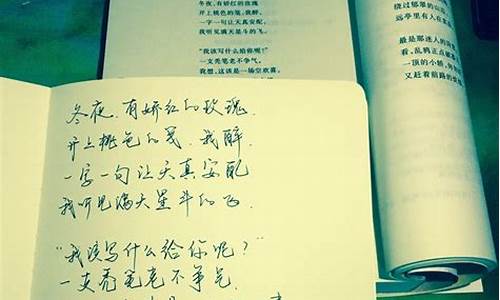 冬夜,有娇红的玫瑰
并上桃色的笺,我醉,
一字一句让天真安配,
我听见满天星斗的飞。
“我该写什么给你呢?”
一支秃笔老不争气,
我想,这该是一场空欢喜。
绕过郁翠的山
远亭里有人在
最是那迷人的
看,乱鸦正点破
一顶的小轿,
又赶着前路的
冬夜,有娇红的玫瑰,
并上桃色的笺,我醉
一字一句让天真安配
我听见满天星斗的飞
“我该写什么给你呢?”
一支秃笔老不争气